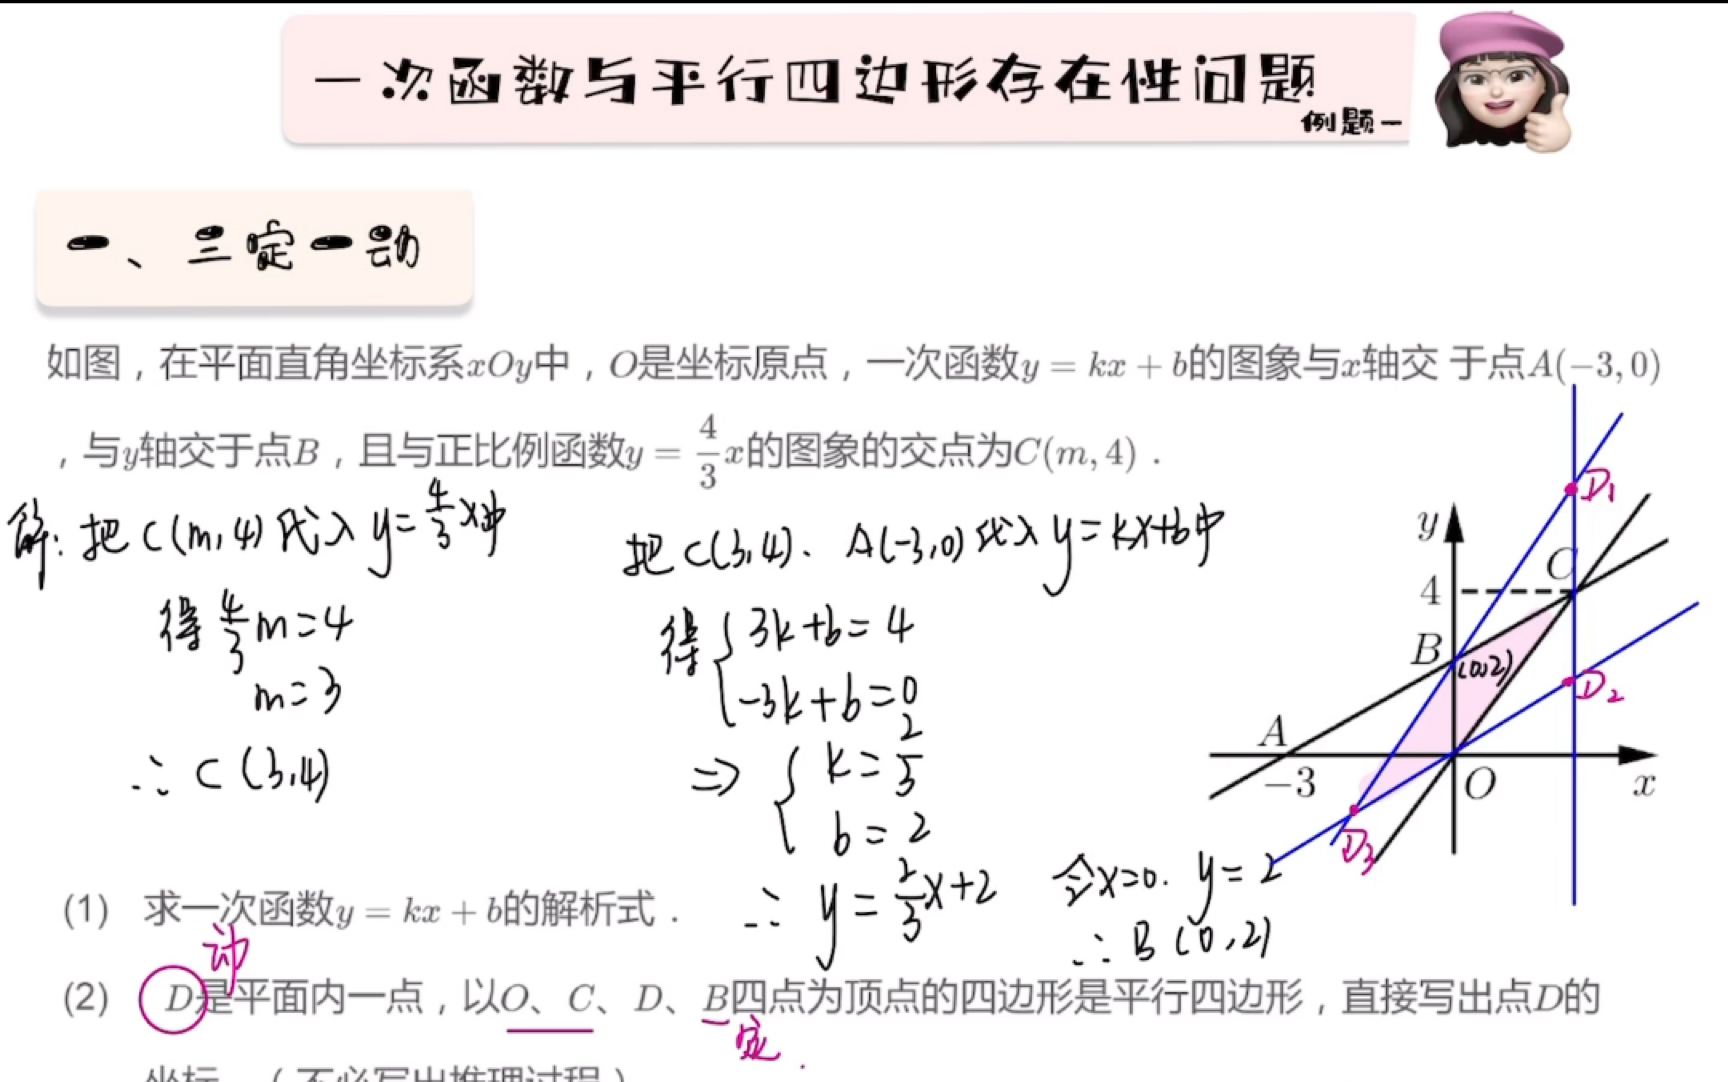 一次函数与平行四边形存在性问题
例题一
一、三定一动
如图，在平面直角坐标系xOy中，O是坐标原点，一次函数y = kx + b的图象与x轴交 于点A(−3, 0)
，与y轴交于点B，且与正比例函数y = 4/3 x的图象的交点为C(m, 4)．
解：把C(m,4)代入y=4/3 x中
得 4/3 m=4
m=3
∴ C(3,4)
把C(3,4)、A(-3,0)代入y=kx+b中
得 { 3k+b=4
-3k+b=0
⇒ { k=2/3
b=2
∴ y=2/3 x+2
令x=0. y=2
∴ B(0,2)
y
4
C
D1
B
(0,2)
D2
A
−3
O
x
D3
(1) 求一次函数y = kx + b的解析式．
动
(2) D是平面内一点，以O、C、D、B四点为顶点的四边形是平行四边形，直接写出点D的
定
坐标．（不必写出推理过程）